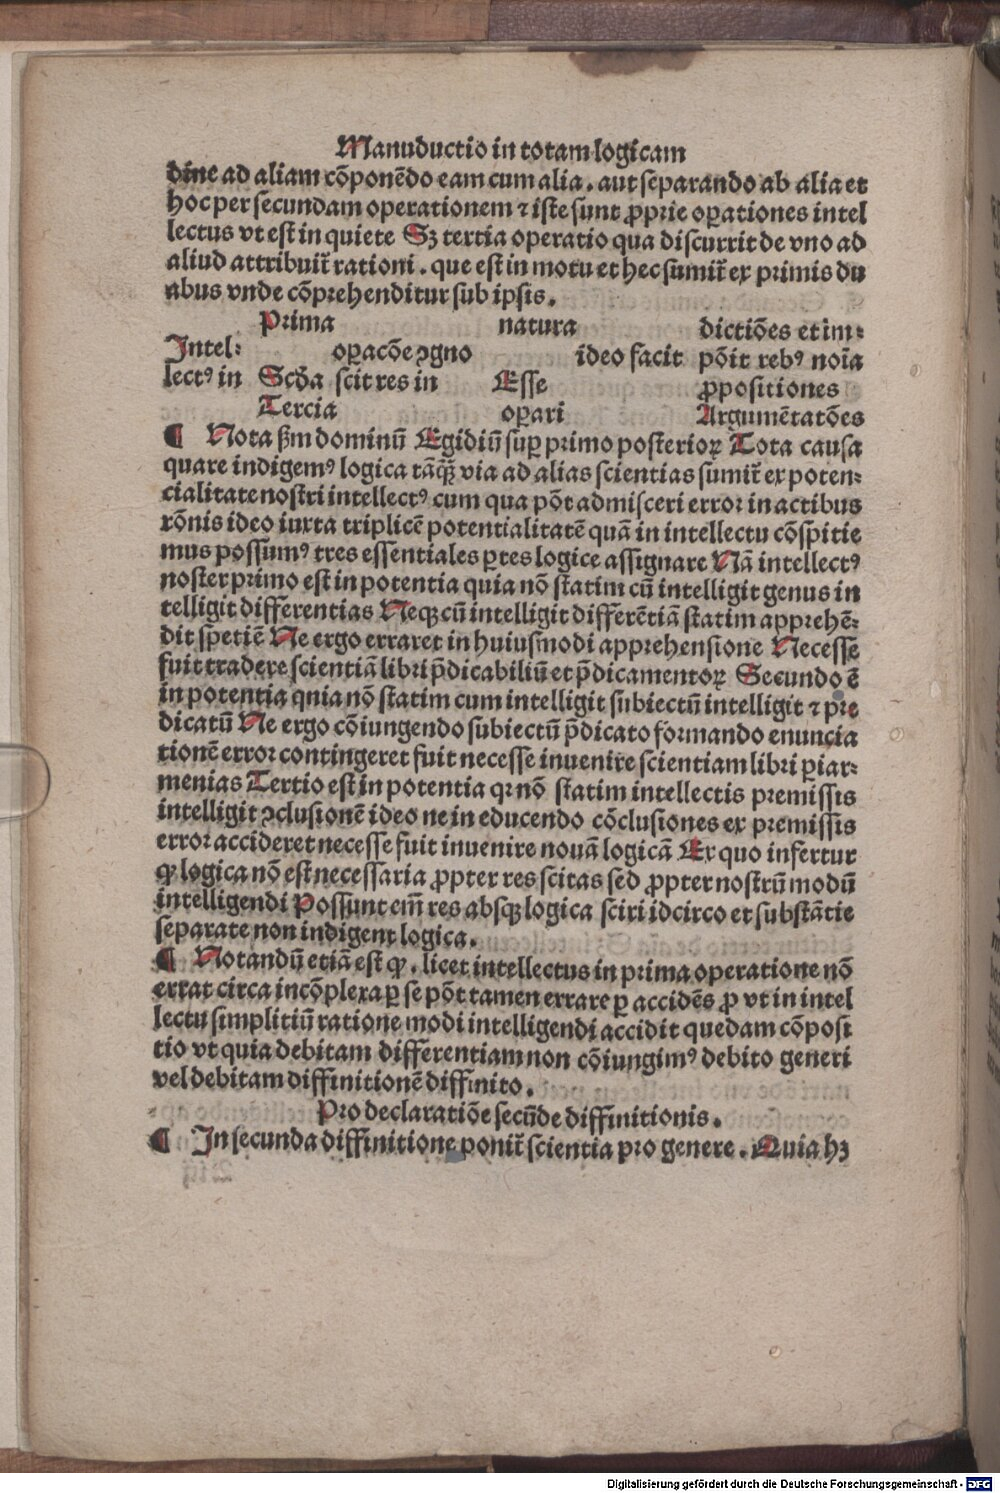 Manuductio in totam logicam
dine ad aliam cōponēdo eam cum alia. aut separando ab alia et
hoc per secundam operationem ⁊ iste sunt ꝓprie oꝑationes intel
lectus vt est in quiete Sꝫ tertia operatio qua discurrit de vno ad
aliud attribuit̄ rationi. que est in motu et hec sumit̄ ex primis du
abus vnde cōprehenditur sub ipsis.
Prima natura dictiōes et im⸗
Intel⸗ oꝑacōe ↄgno ideo facit pōit rebꝰ noīa
lectꝰ in Scḋa scit res in Esse ꝓpositiones
Tercia oꝑari Argumētatōes
¶ Nota ẜm dominū Egidiū suꝑ primo posterioꝝ Tota causa
quare indigemꝰ logica tāq̄ꝫ via ad alias scientias sumit̄ ex poten⸗
cialitate nostri intellectꝰ cum qua pōt admisceri error in actibus
rōnis ideo iuxta triplicē potentialitatē quā in intellectu cōspitie
mus possumꝰ tres essentiales ꝑtes logice assignare Nā intellectꝰ
noster primo est in potentia quia nō statim cū intelligit genus in
telligit differentias Neqꝫ cū intelligit differētiā statim apprehē⸗
dit spetiē Ne ergo erraret in huiusmodi apprehensione Necesse
fuit tradere scientiā libri p̄dicabiliū et p̄dicamentoꝝ Secundo ē
in potentia qnia nō statim cum intelligit subiectū intelligit ⁊ pre
dicatū Ne ergo cōiungendo subiectū p̄dicato formando enuncia
tionē error contingeret fuit necesse inuenire scientiam libri ꝑiar⸗
menias Tertio est in potentia qꝛ nō statim intellectis premissis
intelligit ↄclusionē ideo ne in educendo cōclusiones ex premissis
error accideret necesse fuit inuenire nouā logicā Ex quo infertur
ꝙ logica nō est necessaria ꝓpter res scitas sed ꝓpter nostrū modū
intelligendi Possunt em̄ res absqꝫ logica sciri idcirco et substātie
separate non indigent logica.
¶ Notandū etiā est ꝙ. licet intellectus in prima operatione nō
errat circa incōplexa ꝑ se pōt tamen errare ꝑ accidēs ꝓ vt in intel
lectu simplitiū ratione modi intelligendi accidit quedam cōposi
tio vt quia debitam differentiam non cōiungimꝰ debito generi
vel debitam diffinitionē diffinito.
Pro declaratiōe secūde diffinitionis.
¶ In secunda diffinitione ponit̄ scientia pro genere. Quia hꝫ
Digitalisierung gefördert durch die Deutsche Forschungsgemeinschaft - DFG